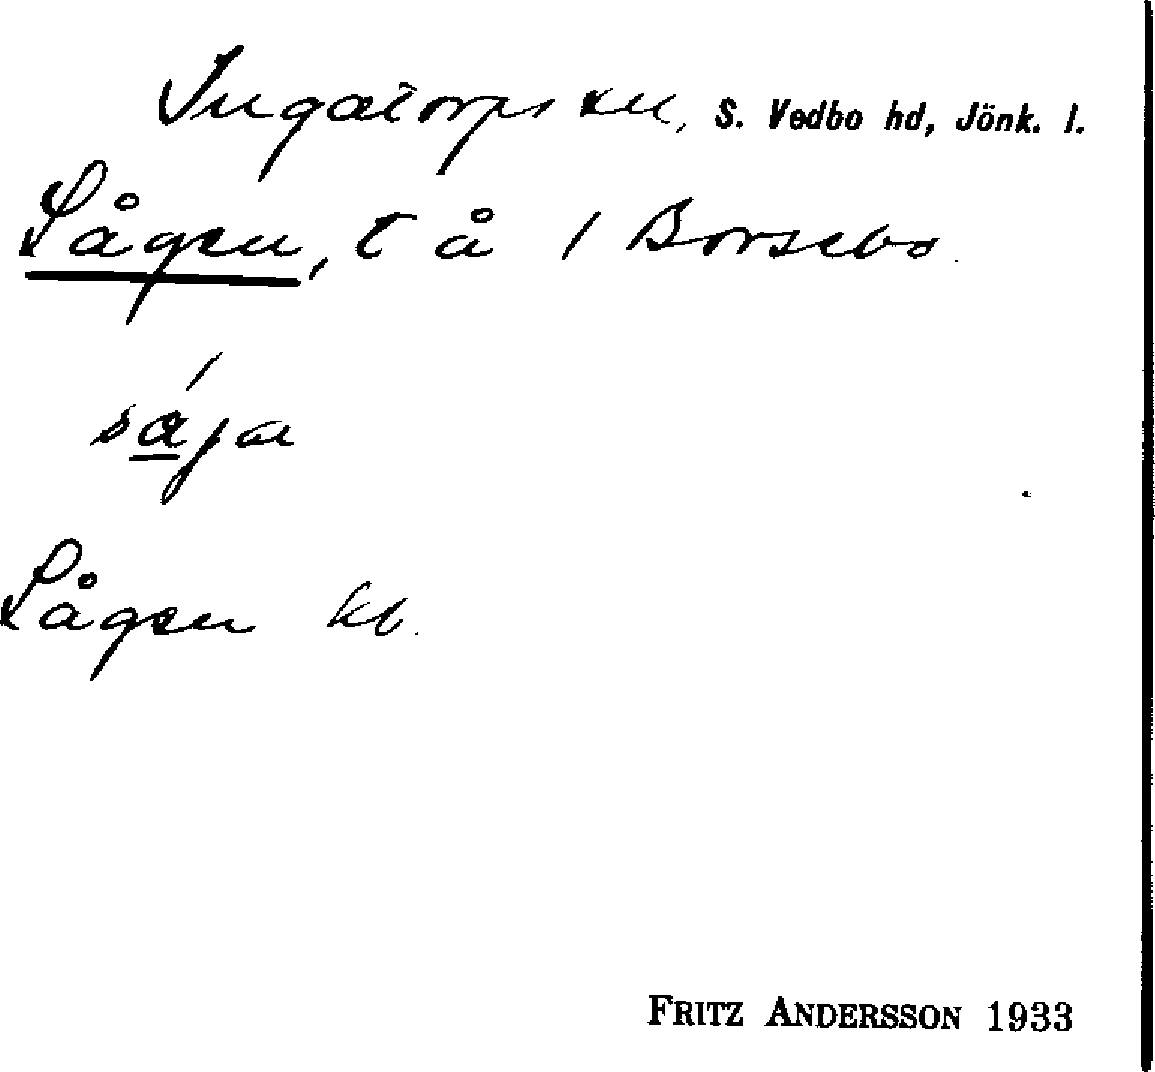 Ingatorps sn, S. Vedbo hd, Jönk. l.
Sågen, t å 1 Borsebo.
såja
Sågen kb.
FRITZ ANDERSSON 1933